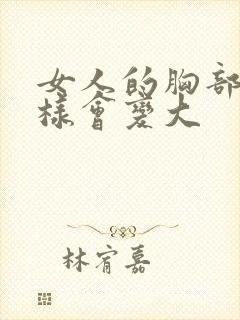 女人的胸部
樣會變大
林宥嘉